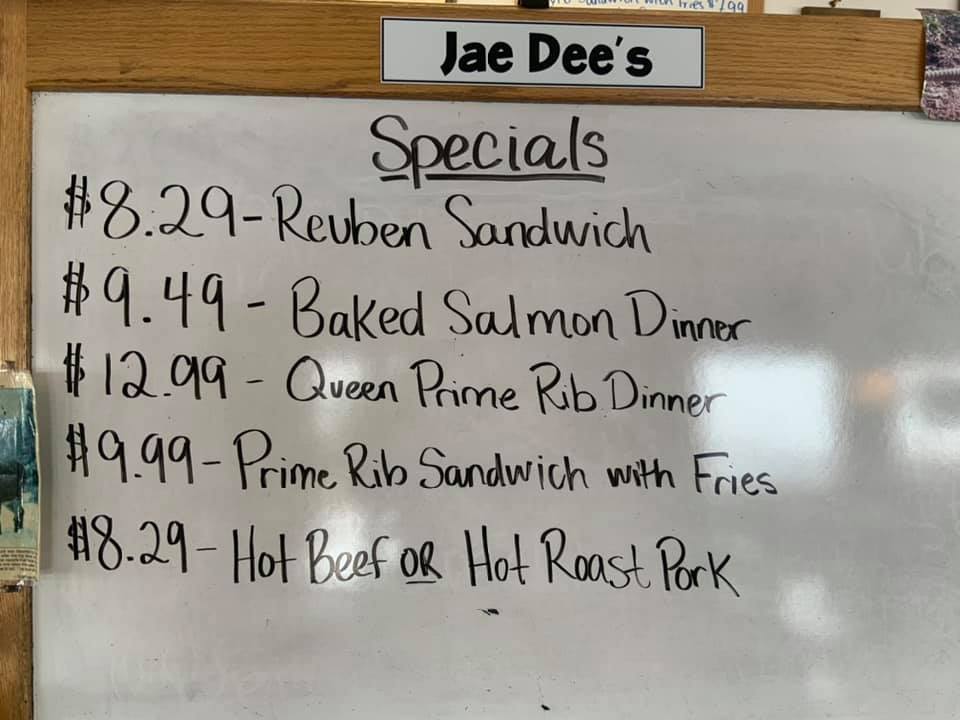 Sandwich with fries $7.99
Jae Dee's
Specials
$8.29-Reuben Sandwich
$9.49 - Baked Salmon Dinner
$12.99 - Queen Prime Rib Dinner
$9.99- Prime Rib Sandwich with Fries
$8.29- Hot Beef OR Hot Roast Pork